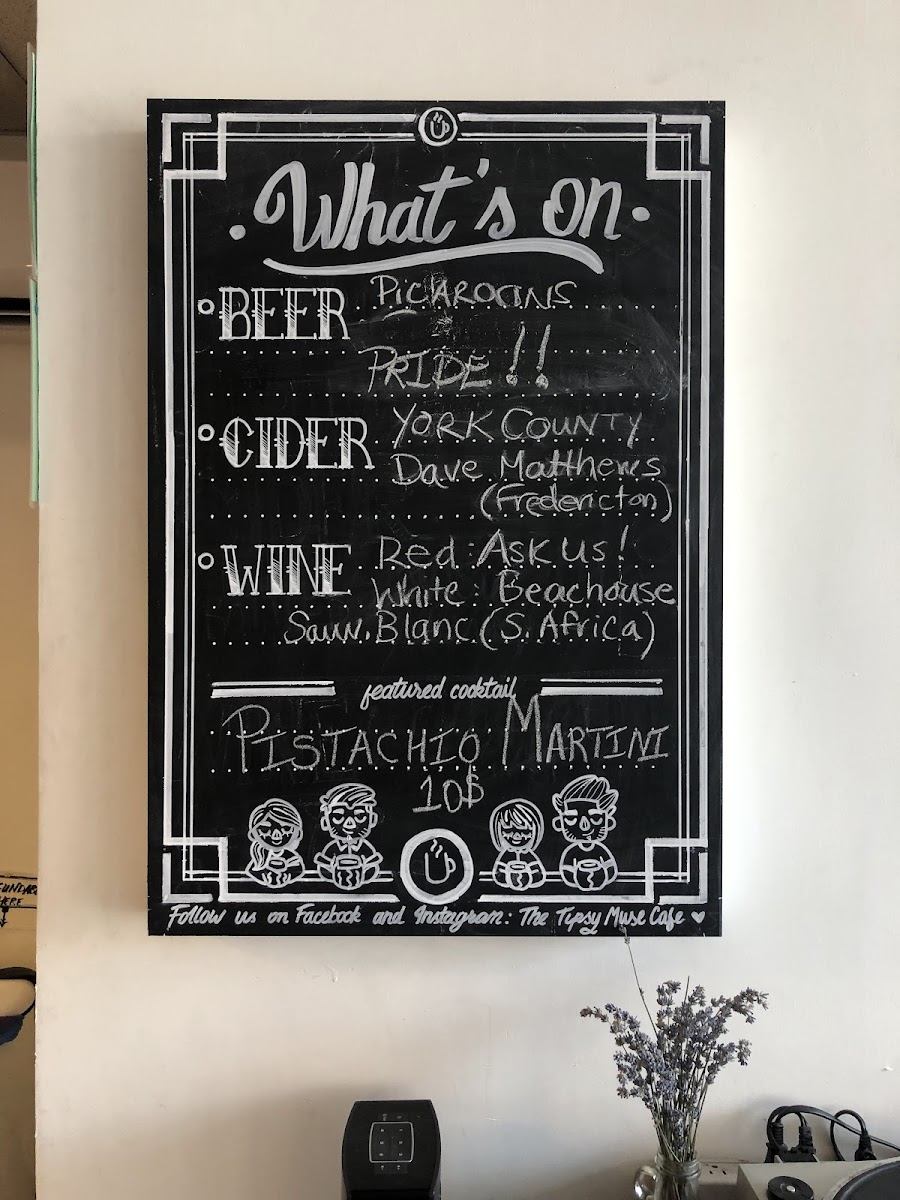 What's on
BEER Picaroons
PRIDE!!
CIDER YORK COUNTY
Dave Matthews
(Fredericton)
WINE Red: Ask us!
White: Beachouse
Sauv. Blanc (S. Africa)
featured cocktail
PISTACHIO MARTINI
10$
Follow us on Facebook and Instagram: The Tipsy Muse Cafe ♥
HERE